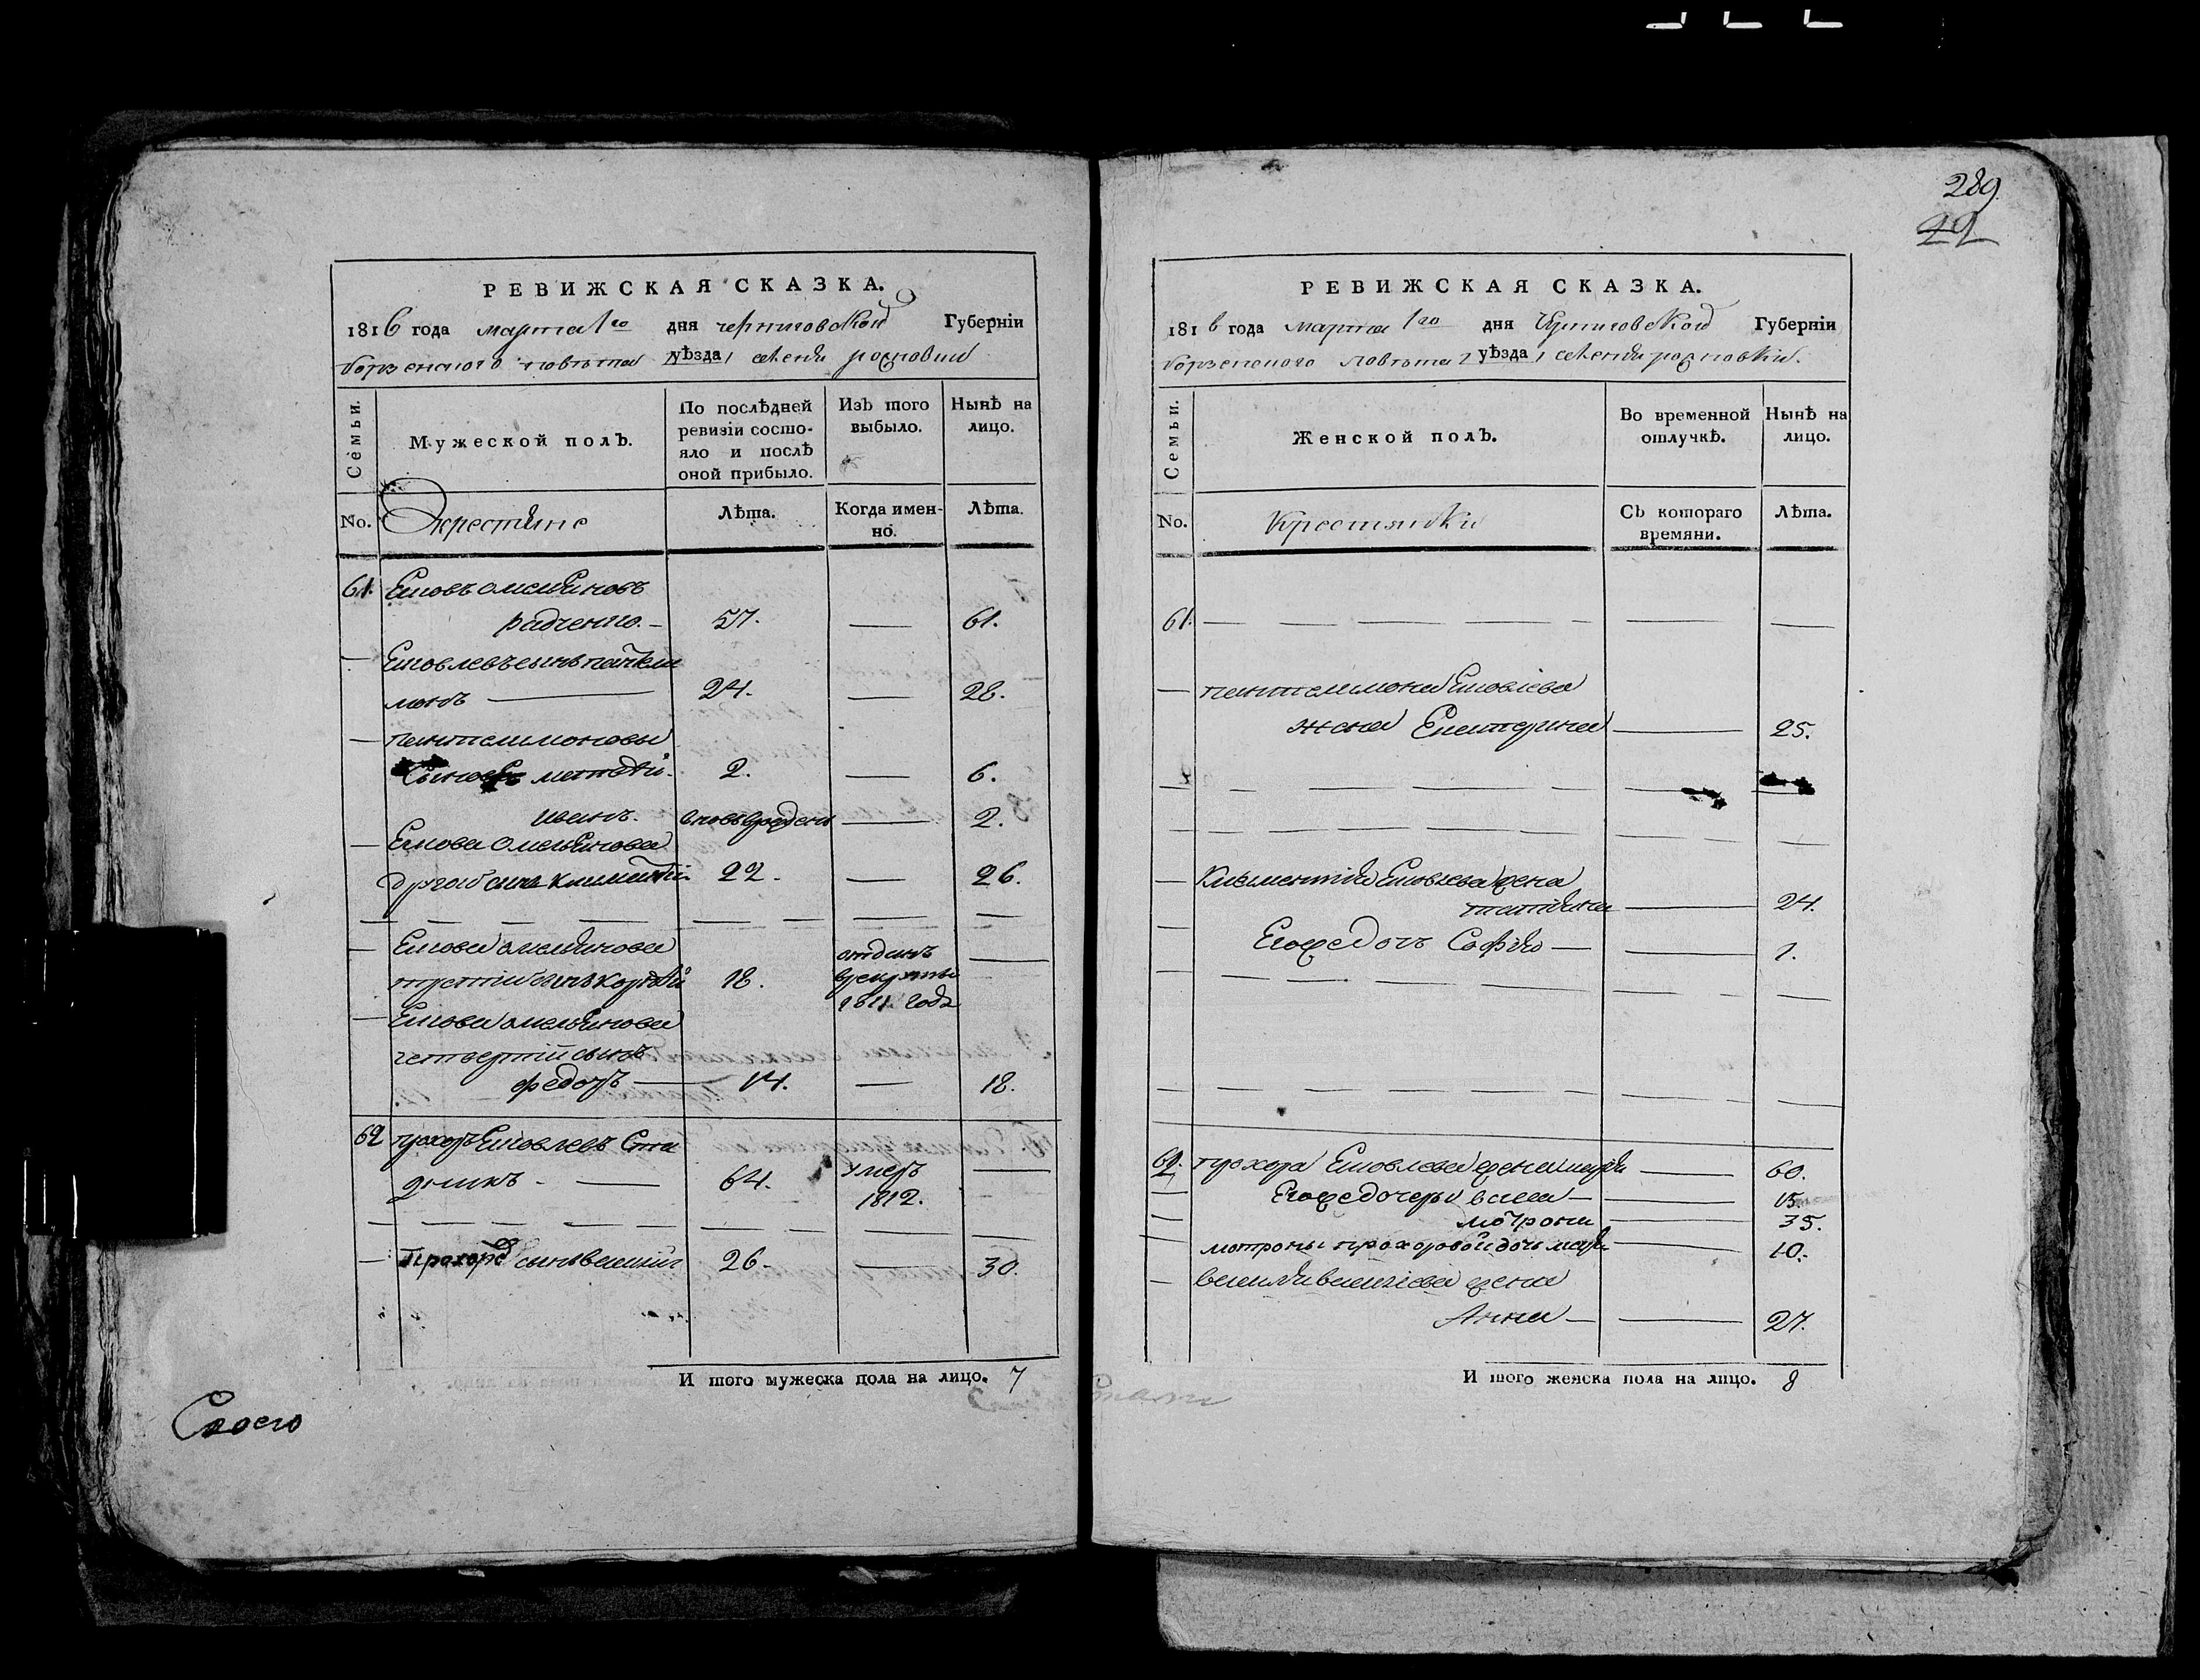 289.
22
РЕВИЖСКАЯ СКАЗКА.
1816 года марта 1го дня черниговской Губерніи
борзенского повѣта уѣзда, селенія
Семьи.
Мужеской полЪ.
По послѣдней
ревизіи состо-
яло и послѣ
оной прибыло.
ИзЪ того
выбыло.
НынѢ на
лицо.
No.
крестяне
ЛѢта.
Когда имен-
но.
ЛѢта.
61. Яковъ омеляновъ
радченко. 57. — 61.
— Яковлевъ сынъ пантели
монъ — 24. — 28.
— пантелимоновы
Сыновья матвѣй. 2. — 6.
иванъ. вновь рожденъ — 2.
— Якова Омелянова
другой сынъ климентій 22. — 26.
— Якова омелянова
третій сынъ 18. отданъ —
врекруты
1811 года
— Якова омелянова
четвертій сынъ
федоръ — 14. — 18.
62 прохоръ Яковлевъ
64. умеръ —
1812.
— Прохора сынъ василий 26. — 30.
И того мужеска пола на лицо. 7
Своего
РЕВИЖСКАЯ СКАЗКА.
1816 года марта 1го дня Черниговской Губерніи
борзенского повѣта уѣзда, селенія
Семьи.
Женской полЪ.
Во временной
отлучкѢ.
НынѢ на
лицо.
No.
Крестянки
СЬ котораго
времяни.
ЛѢта.
61. — — —
— пантелимона Яковлева
жена Екатерина — 25.
— климентія Яковлева жена
татіяна — 24.
— Егоже дочь Софія — 1.
62. прохора Яковлева жена — 60.
— Егоже дочери — 15.
— мотрона — 35.
мотроны прохоровой дочь — 10.
— жена
Анна — — 27.
И того женска пола на лицо. 8